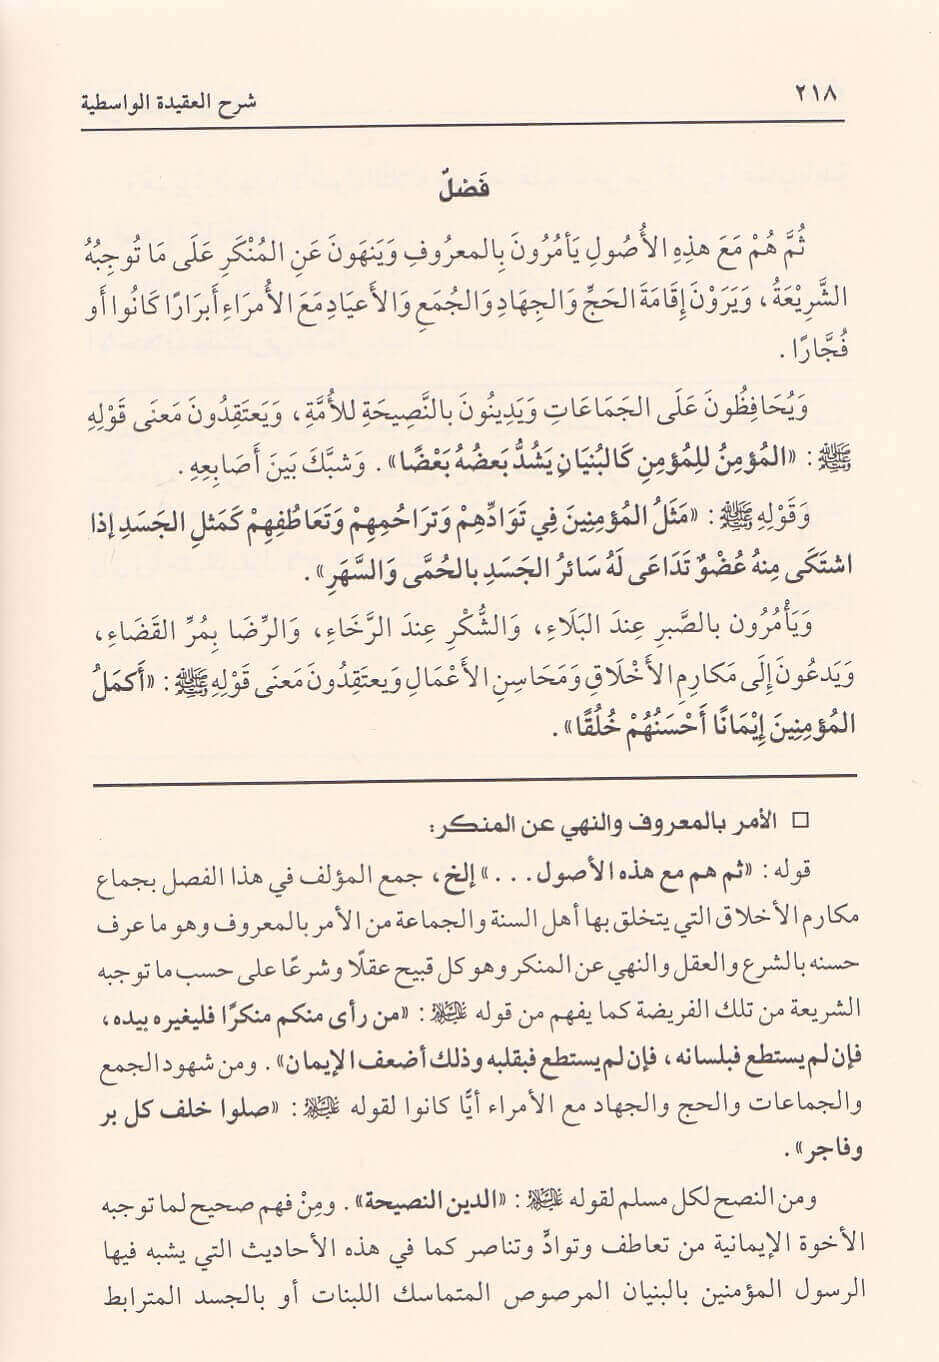 ٢١٨
شرح العقيدة الواسطية
فَصْلٌ
ثُمَّ هُمْ مَعَ هذِهِ الأُصُولِ يَأمُرُونَ بِالمعرُوفِ وَيَنهَونَ عَنِ المُنْكَرِ عَلَى مَا تُوجِبُهُ
الشَّرِيْعَةُ، وَيَرَوْنَ إِقَامَةَ الحَجِّ وَالجِهَادِ وَالجُمَعِ وَالأَعيَادِ مَعَ الأُمرَاءِ أَبرَارًا كَانُوا أَو
فُجَّارًا .
وَيُحَافِظُونَ عَلَى الجَمَاعَاتِ وَيَدِينُونَ بالنَّصِيحَةِ للأُمَّةِ، وَيَعتَقِدُونَ مَعنَى قَوْلِهِ
ﷺ : «المُؤمِنُ للِمُؤمِنِ كَالبُنيَانِ يَشُدُّ بَعضُهُ بَعْضًا» . وَشبَّكَ بَينَ أَصَابِعِهِ .
وَقَوْلِهِ ﷺ : «مَثَلُ المُؤمِنِينَ فِي تَوَادِّهِمْ وَترَاحُمِهِمْ وَتَعَاطُفِهِمْ كَمَثلِ الجَسَدِ إذا
اشتَكَى مِنهُ عُضْوٌ تَدَاعَى لَهُ سَائرُ الجَسَدِ بالحُمَّى وَالسَّهَرِ» .
وَيَأْمُرُون بالصَّبرِ عِندَ البَلَاءِ، وَالشُّكْرِ عِندَ الرَّخَاءِ، وَالرِّضَا بِمُرِّ القَضَاءِ،
وَيَدعُونَ إِلَى مَكَارِمِ الأَخْلَاقِ وَمَحَاسِنِ الأَعْمَالِ وَيعتَقِدُونَ مَعنَى قَوْلِهِ ﷺ : «أَكمَلُ
المُؤمِنِينَ إِيْمَانًا أَحْسَنُهُمْ خُلُقًا» .
□ الأمر بالمعروف والنهي عن المنكر:
قوله : «ثم هم مع هذه الأصول . . .» إلخ، جمع المؤلف في هذا الفصل بجماع
مكارم الأخلاق التي يتخلق بها أهل السنة والجماعة من الأمر بالمعروف وهو ما عرف
حسنه بالشرع والعقل والنهي عن المنكر وهو كل قبيح عقلًا وشرعًا على حسب ما توجبه
الشريعة من تلك الفريضة كما يفهم من قوله عليه السلام : «من رأى منكم منكرًا فليغيره بيده،
فإن لم يستطع فبلسانه، فإن لم يستطع فبقلبه وذلك أضعف الإيمان» . ومن شهود الجمع
والجماعات والحج والجهاد مع الأمراء أيًّا كانوا لقوله عليه السلام : «صلوا خلف كل بر
وفاجر» .
ومن النصح لكل مسلم لقوله عليه السلام : «الدين النصيحة» . ومِنْ فهم صحيح لما توجبه
الأخوة الإيمانية من تعاطف وتوادٍّ وتناصر كما في هذه الأحاديث التي يشبه فيها
الرسول المؤمنين بالبنيان المرصوص المتماسك اللبنات أو بالجسد المترابط